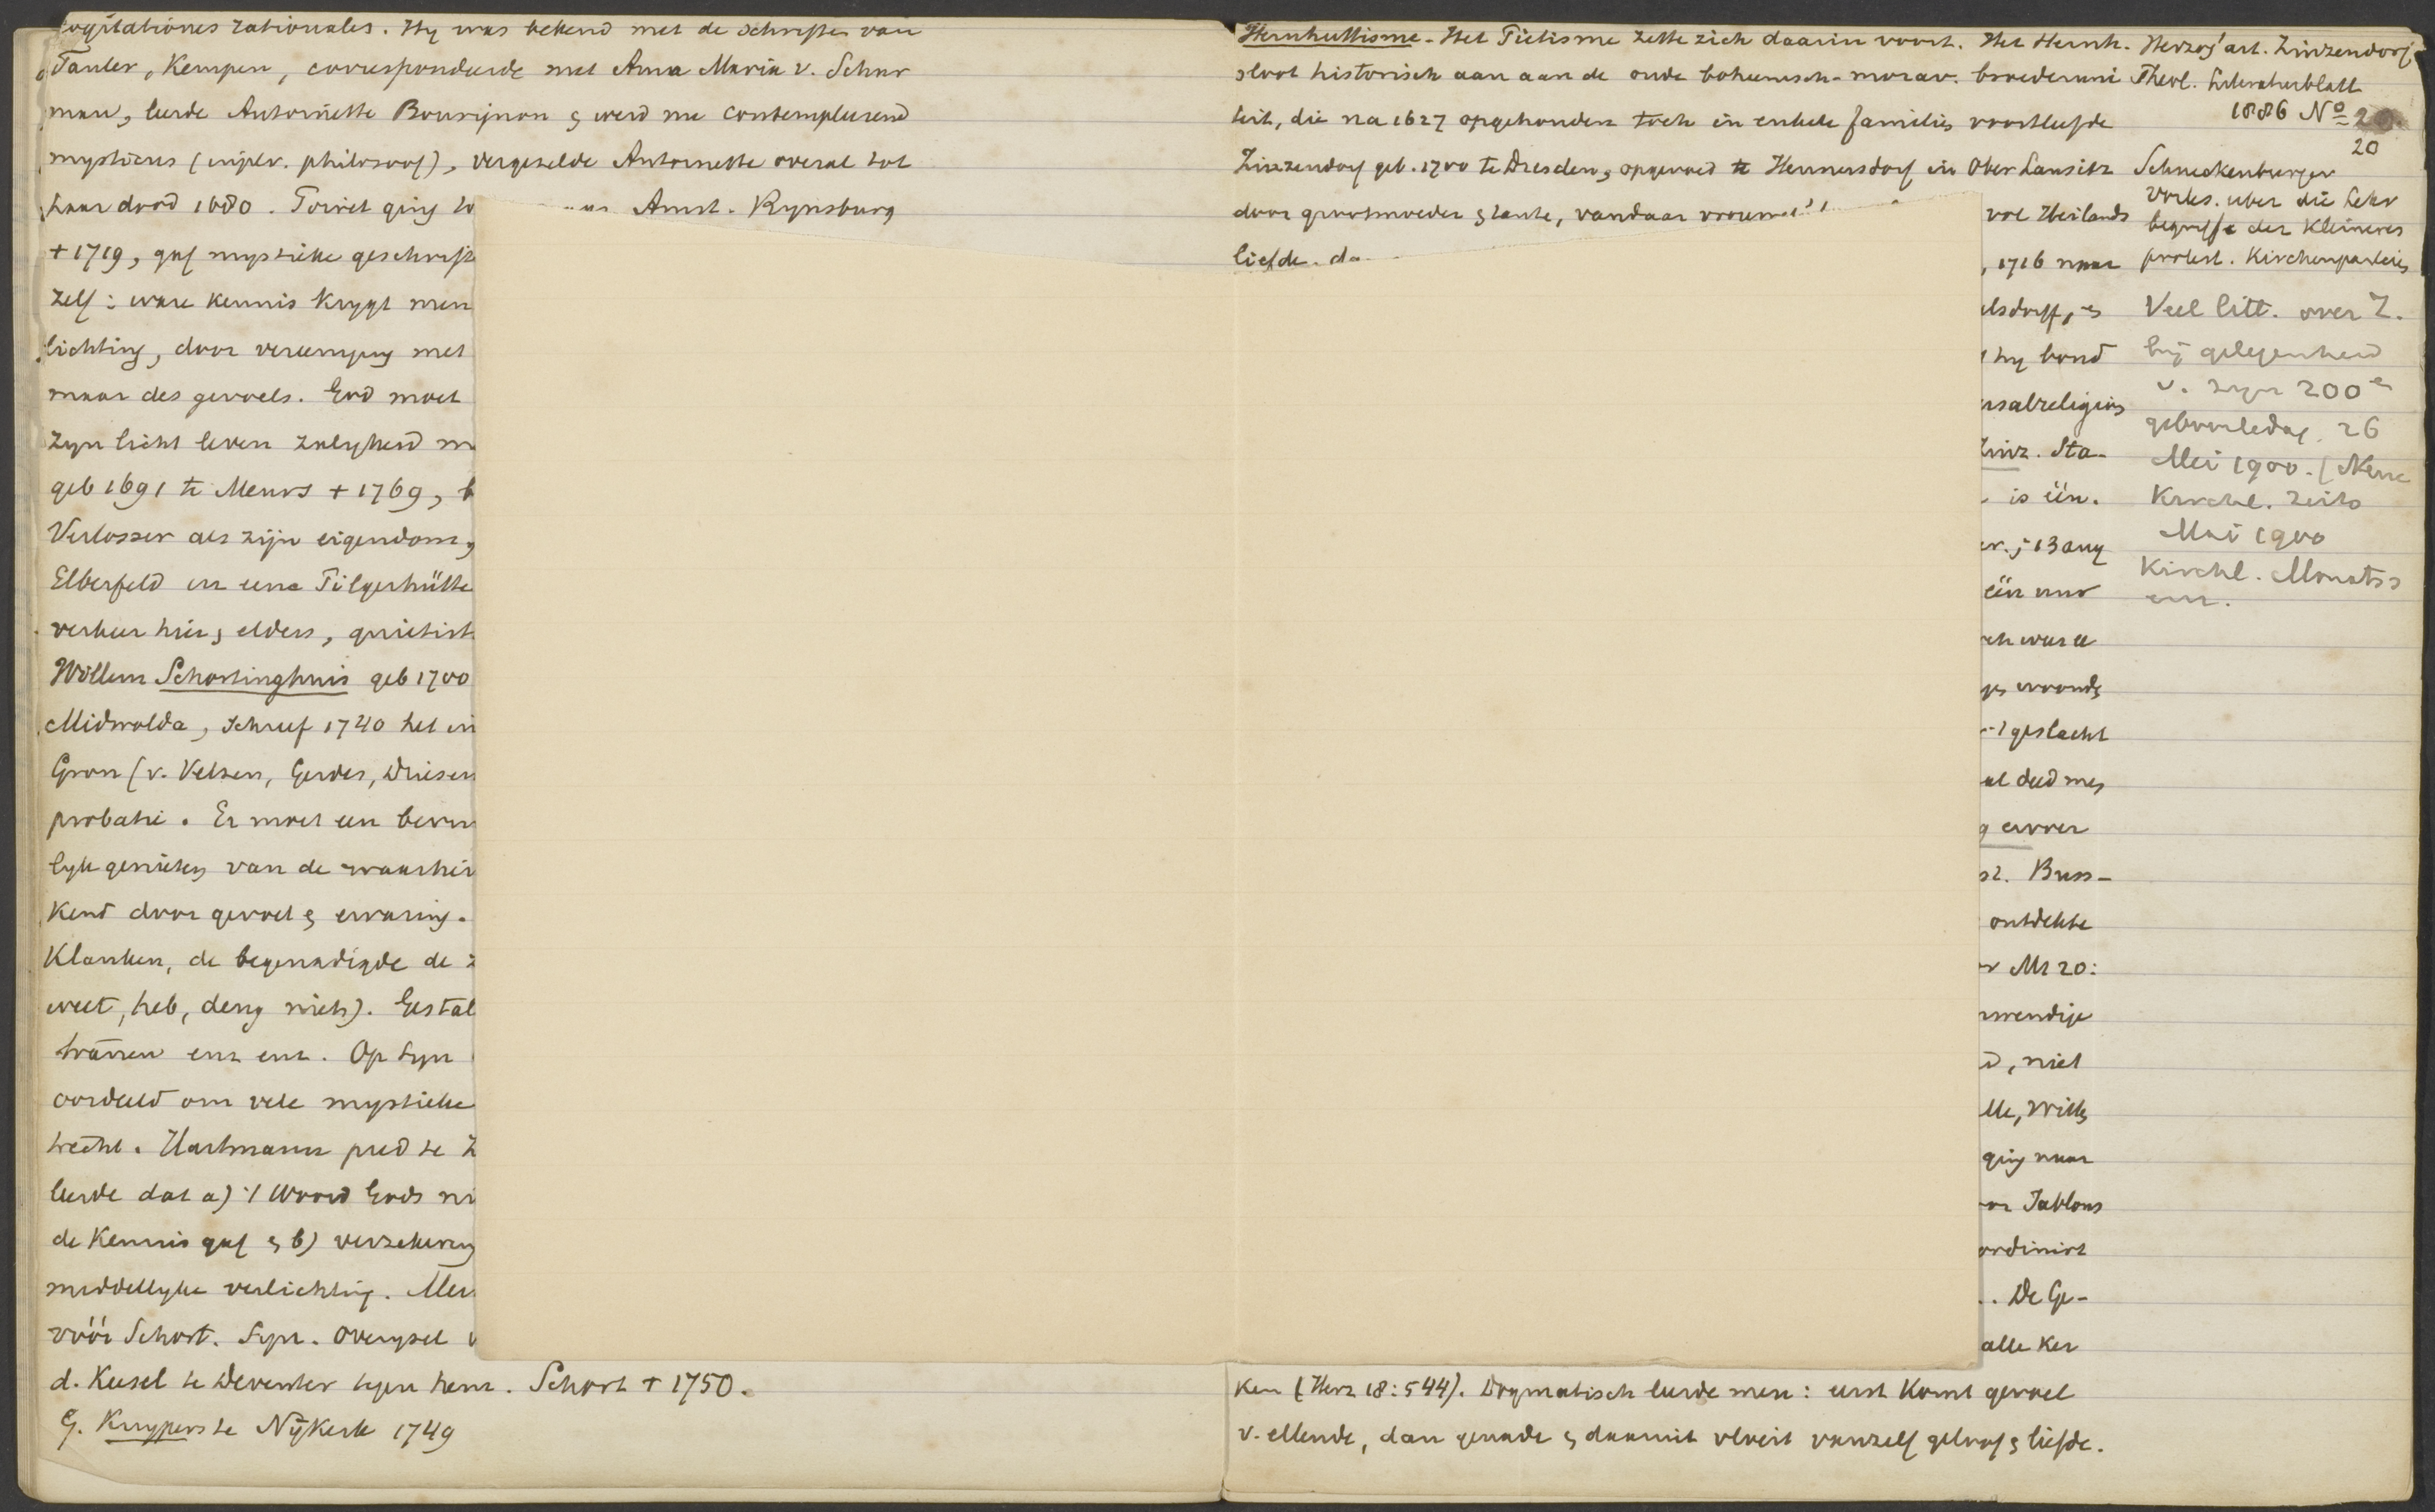 cogitationes rationales. Hy was bekend met de schriften van
Tauler, Kempen, correspondeerde met Anna Maria v. Schur
man, leerde Antoinette Bourignon & werd nu contemplerend
mysticus (ipv. philosoof), vergezelde Antoinette overal tot
haar dood 1680. Poiret ging Amst. Rynsburg
+ 1719, gaf mystieke geschrift
zelf: ware kennis krygt men
lichting, door vereeniging met
maar des gevoels. God moet
zyn licht leven zaligheid
geb 1691 te Meurs + 1769,
Verlosser als zijn eigendom,
Elberfeld en eene Pilgerhütte
verkeer hier & elders, quietist
Willem Schortinghuis geb 1700
Midwolda, schreef 1740 het in
Gron (v. Velzen, Gerdes, Driesen
probatie. Er moet een bevin
lyk genieten van de waarhei
kend door gevoel & ervaring.
Klanken, de begenadigde de z
weet, heb, deug niets). Gestal
tranen enz enz. Op Syn
oordeeld om vele mystieke
trecht. Hartmann pred te Z
leerde dat a) 't Woord Gods ni
de kennis gaf & b) verzekering
middellyke verlichting. Men
vóór Schort. Syn. Overysel v
d. Keesel te Deventer tegen hem. Schort + 1750.
G. Kuypers te Nijkerk 1749
Hernhuttisme. Het Pietisme zette zich daarin voort. Het Hernh.
sloot historisch aan aan de oude boheemsch-morav. broederuni
teit, die na 1627 opgehouden toch in enkele families voortleefde
Zinzendorf geb. 1700 te Dresden, opgevoed te Hennersdorf in Ober Lausitz
door grootmoeder & tante, vandaar vol Heilands
liefde. , 1716 naar
elsdorff, &
hy bond
ersalreligion
Zinz. Sta-
is één.
; 13 aug
één uur
geslacht
al deed men
ervoer
st. Buss-
ontdekte
Mt 20:
wendige
, niet
ging naar
Jablons
ordinirt
.. De Ge-
alle ker
ken (Herz 18:544). Dogmatisch leerde men: eerst komt gevoel
v. ellende, dan genade & daaruit vloeit vanzelf geloof & liefde.
Herzog' art. Zinzendorf
Theol. Literaturblatt
1886 No 20
20
Schneckenburger
Vorles. uber die Lehr
begriffe der Kleineren
protest. Kirchenparteien
Veel litt. over Z.
bij gelegenheid
v. zyn 200e
geboortedag. 26
Mei 1900. (Neue
Kirchl. Zeits
Mai 1900
Kirchl. Monatss
enz.